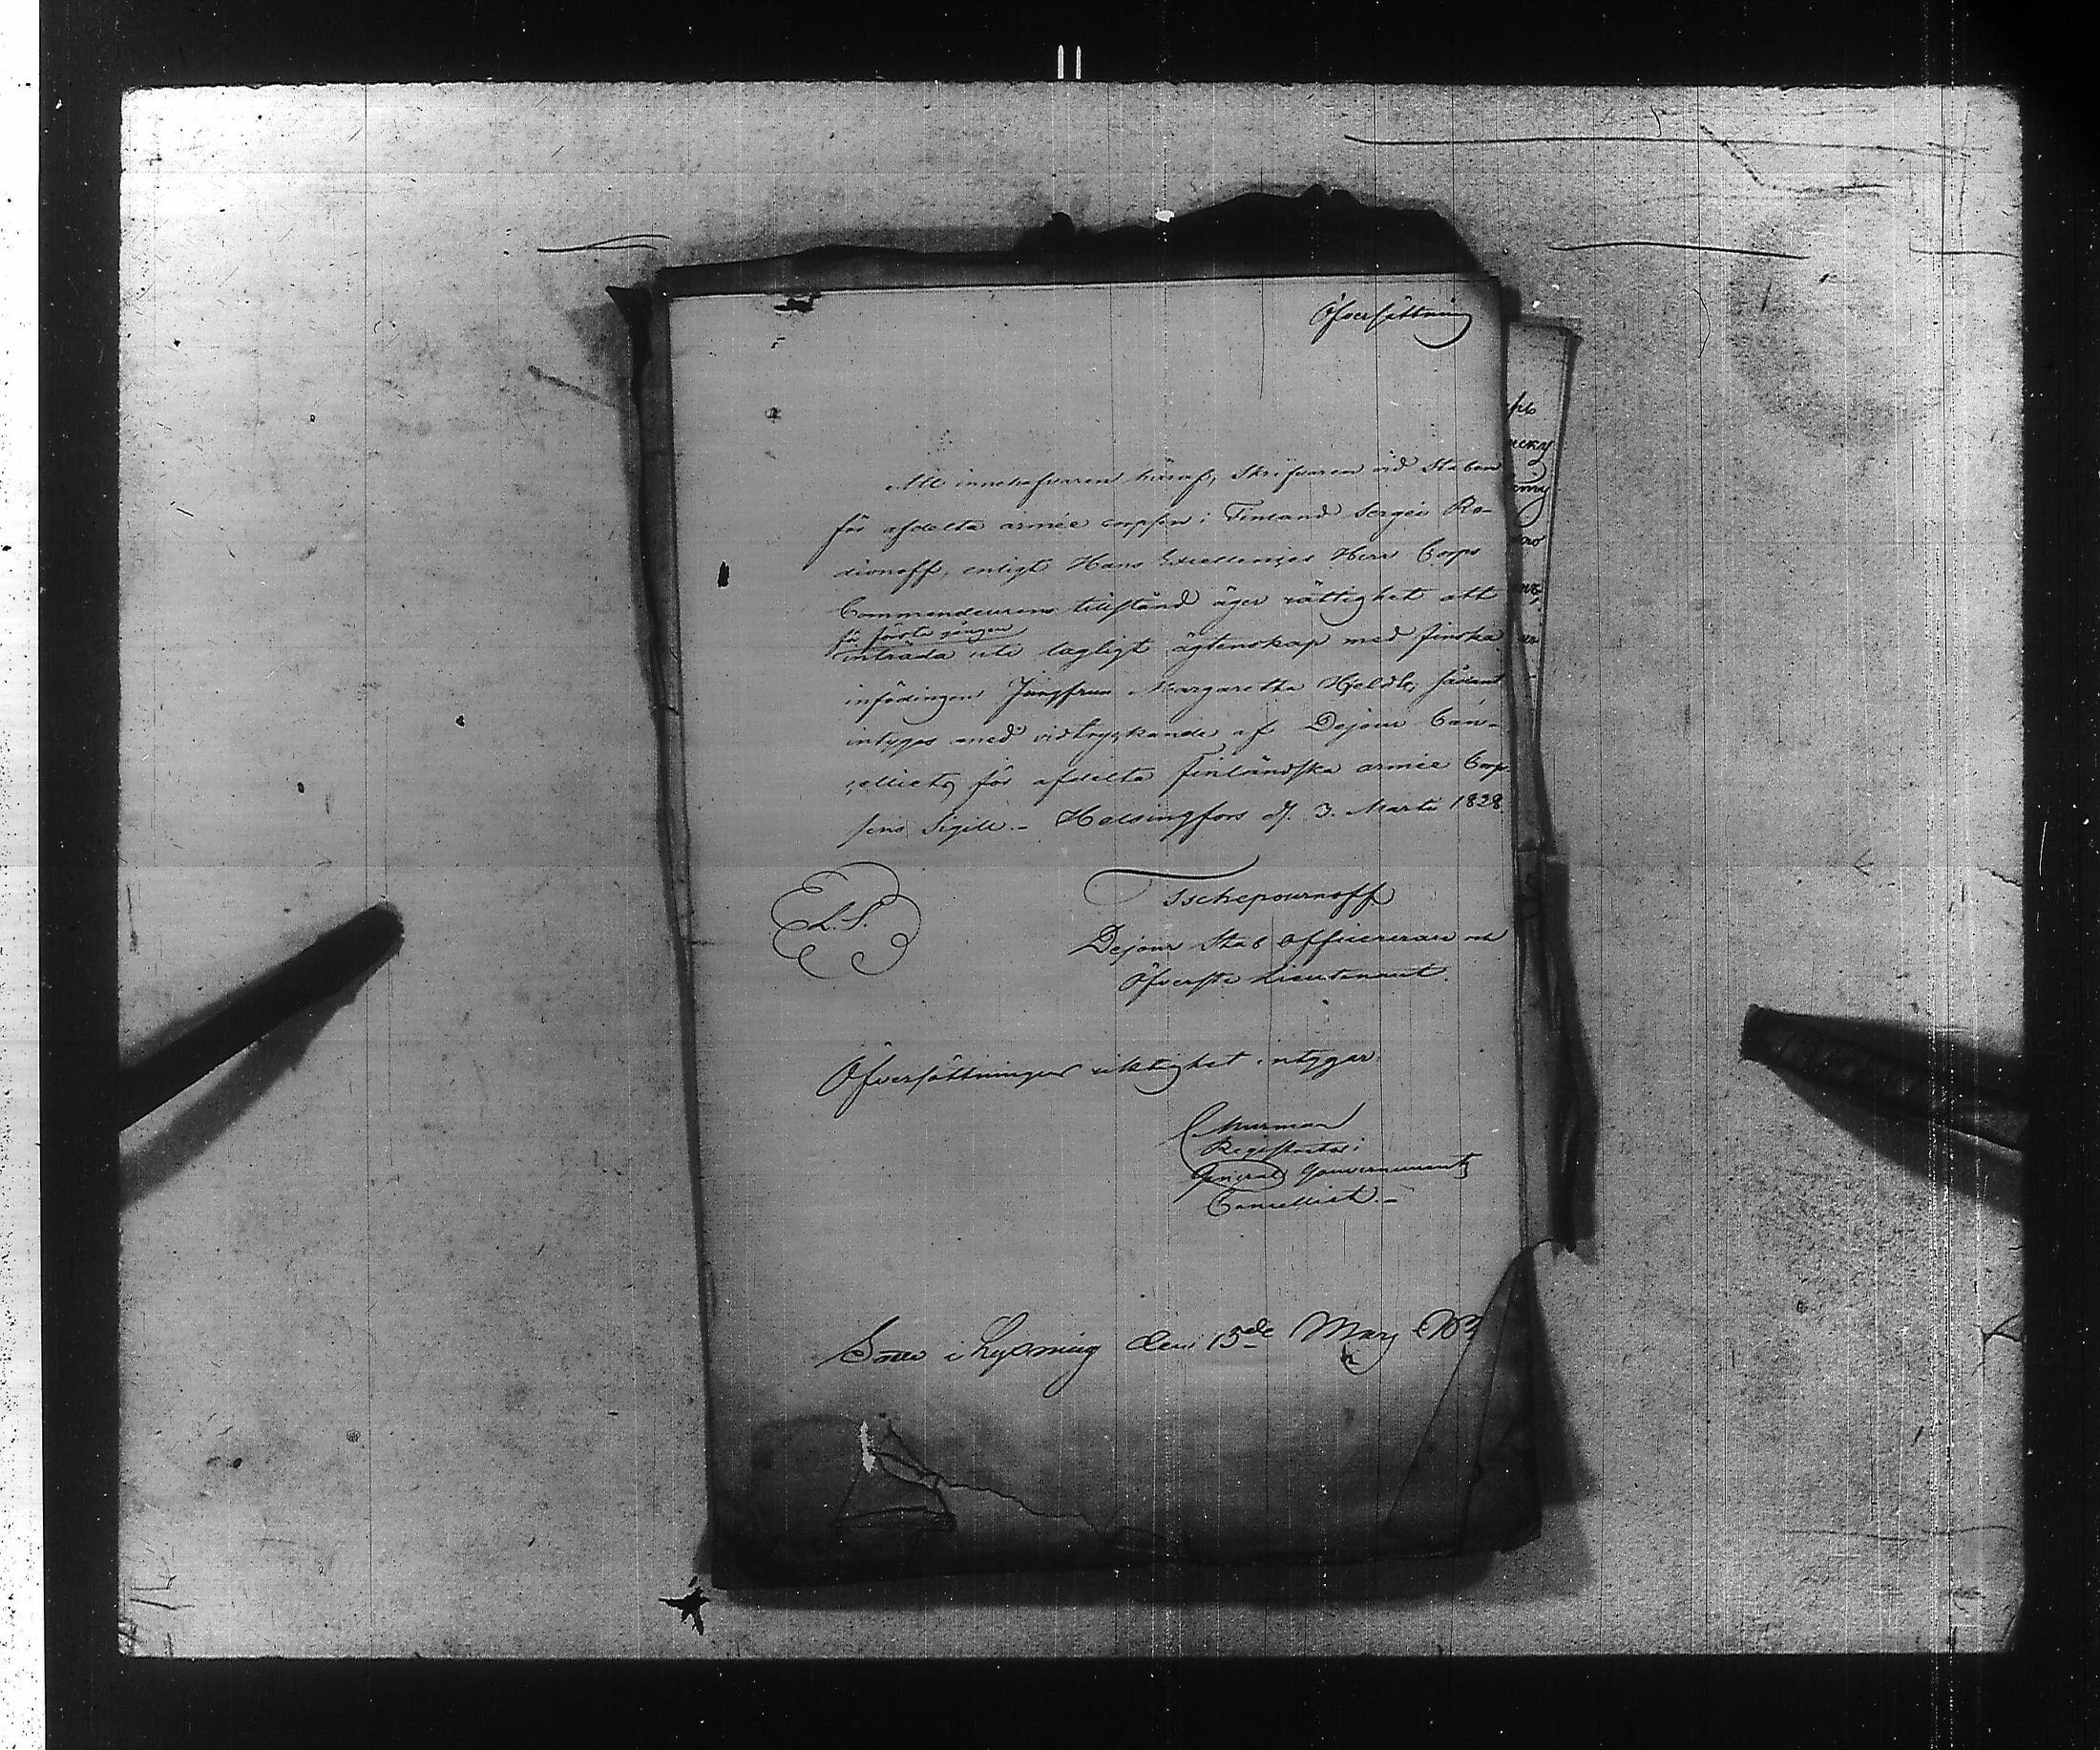 Öfversättning
Att innehafvaren häraf, Skrifvaren vid Staben
för afdelta armée corpsen i Finland Sergei Ro-
dionoff, enligt Hans Excellences Herr Corps
Commendeurens tillstånd äger rättighet att
få första gången
inträda uti lagligt ägtenskap med finska
infödingen Jungfrun Margaretha Hjeldt, sådant
intyges med vidtryckande af Dejour Can-
celliets för afdelta Finländska armée Corp-
sens Sigill.- Helsingfors d. 3. Marti 1828
Tschepournoff
L.S.
Dejour Stab officerare och
Öfverste Lieutenant.
Öfversättningens riktighet intygar
Murman
Registrator i
General Gouvernements
Cancelliet.-
Lysning den 15de